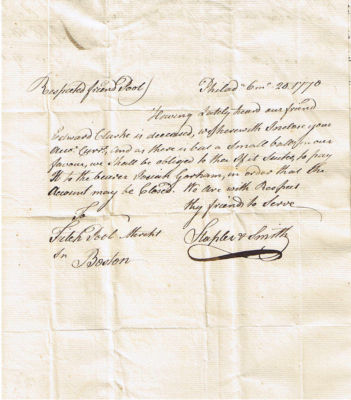 Respected friend Pool
Philad.ª 6mo 20. 1770
Having lately heard our friend
Edward Clarke is deceased, we herewith Inclose your
Acco. Curr.t, and as there is but a Small ball.ce in our
favour, we shall be obliged to thee If it Suites to pay
it to the bearer Josiah Gorham, in order that the
Account may be Closed. We are with Respect
thy friends to Serve
Stapler & Smith
To
Fitch Pool Mercht
In
Boston